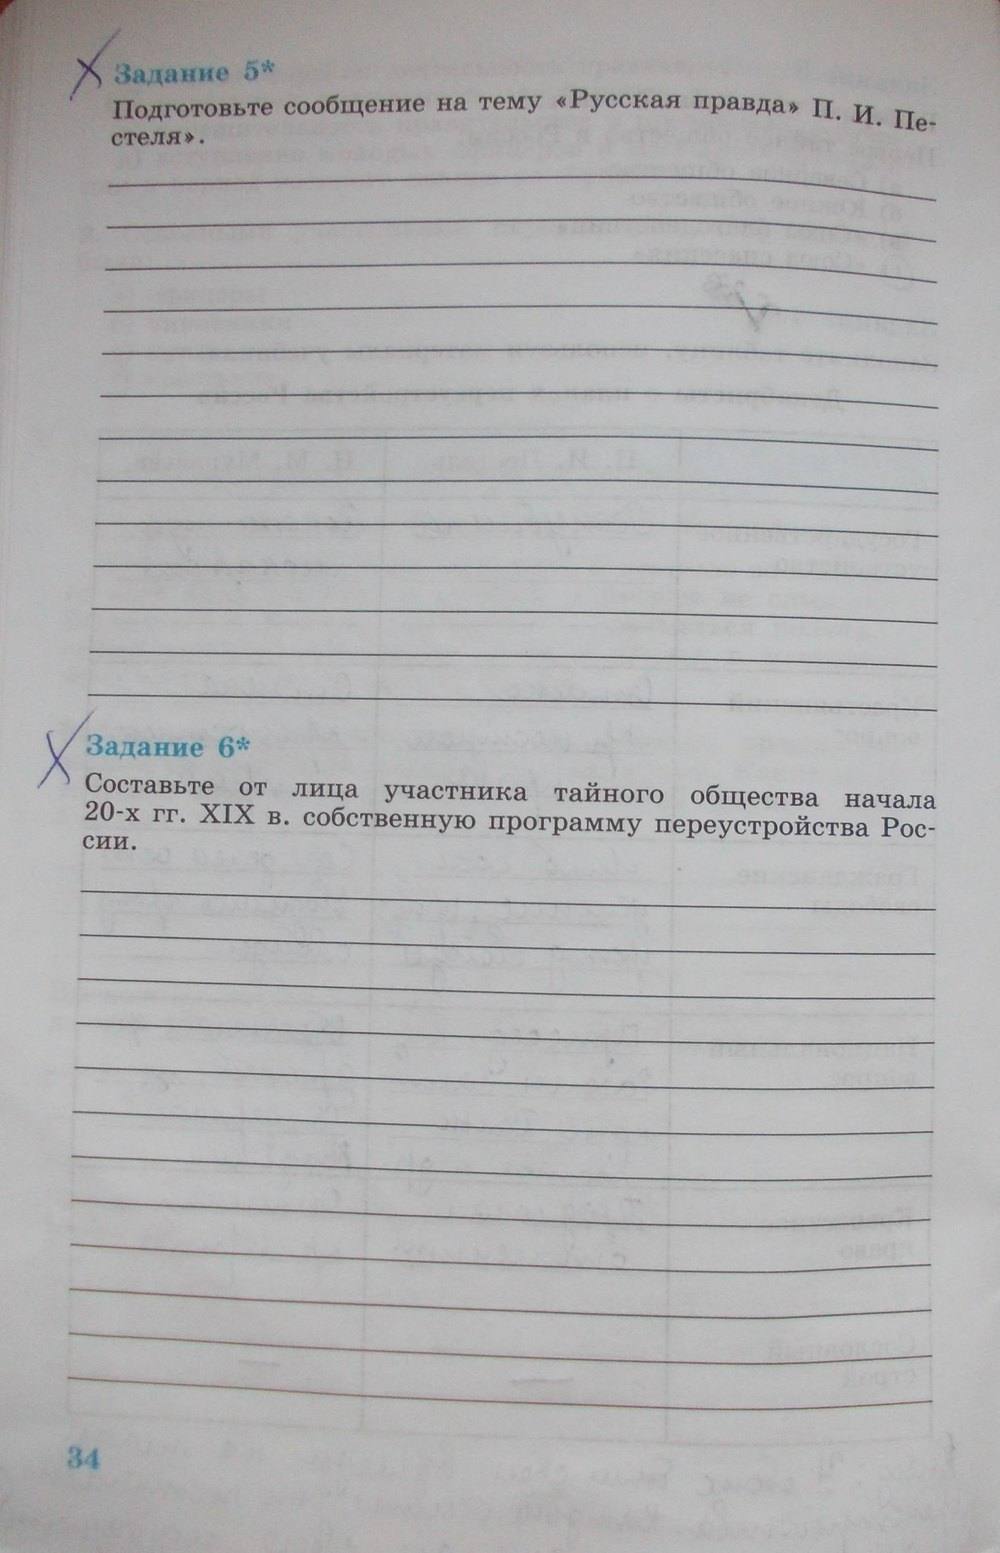 Задание 5*
Подготовьте сообщение на тему «Русская правда» П. И. Пе-
стеля».
Задание 6*
Составьте от лица участника тайного общества начала
20-х гг. XIX в. собственную программу переустройства Рос-
сии.
34